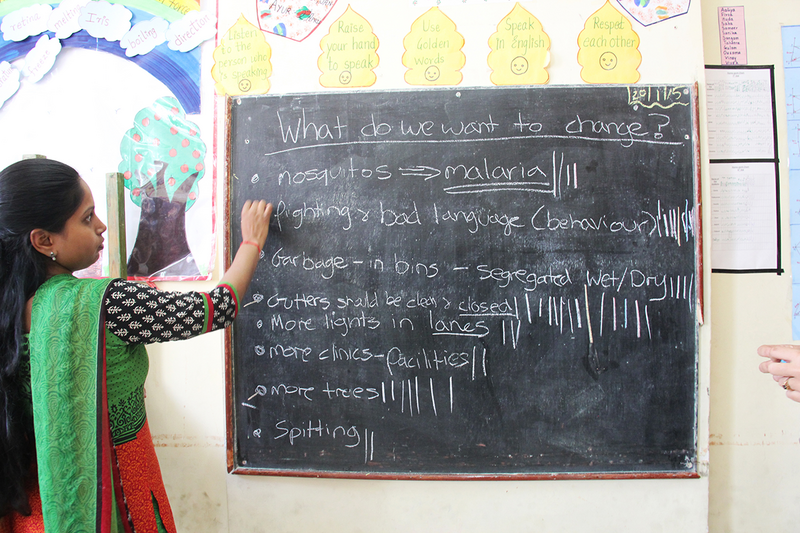 rotating
melting
Iris
boiling
direction
Listen
to the
person who
is speaking
Raise
your hand
to speak
Use
Golden
words
Speak
in English
Respect
each other
20/11/15
What do we want to change?
mosquitos ⇒ malaria
fighting & bad language (behaviour)
Garbage - in bins - segregated Wet/Dry
Gutters should be clean & closed
More lights in lanes
more clinics - facilities
more trees
Spitting